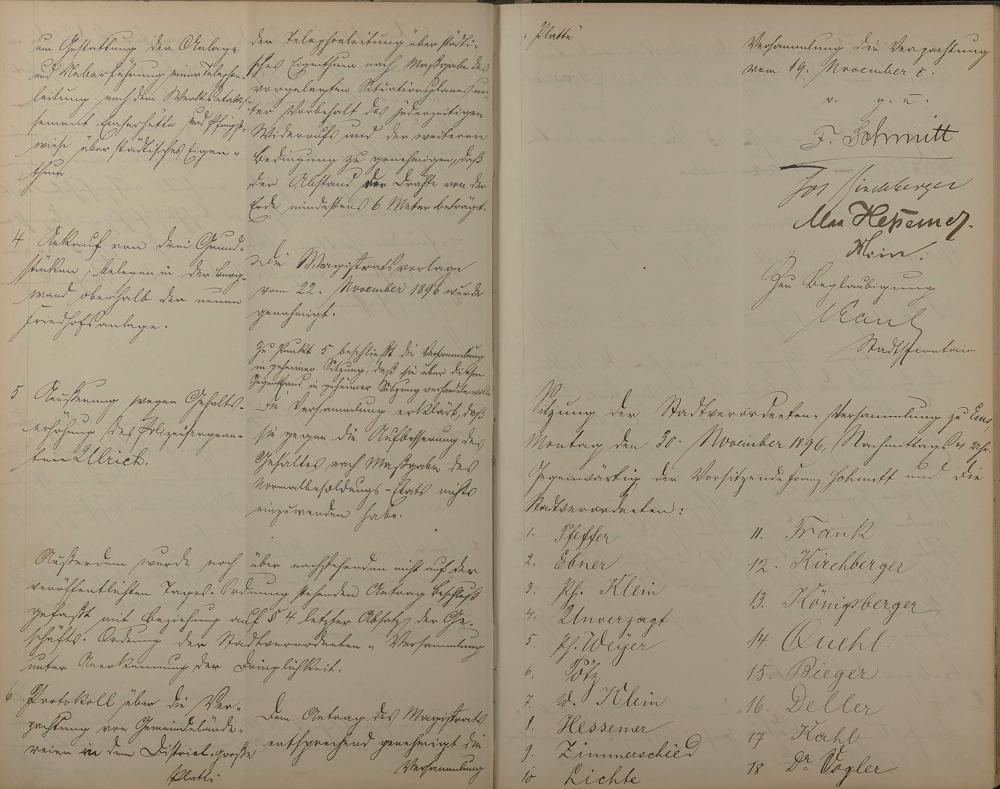 um Gestattung der Anlage
und Ueberführung einer Telephon-
leitung nach dem Werksetablis-
sement Emserhütte und Pfingst-
wiese über städtisches Eigen-
thum
der Telephonleitung über städti-
sches Eigenthum nach Maßgabe des
vorgelegten Situationsplanes un-
ter Vorbehalt des jederzeitigen
Widerrufs und der weiteren
Bedingung zu genehmigen, daß
der Abstand der Drähte von der
Erde mindestens 6 Meter beträgt.
4 Ankauf von drei Grund-
stücken, belegen in der Berg-
wand oberhalb der neuen
Friedhofsanlage.
Die Magistratsvorlage
vom 22. November 1896 wurde
genehmigt.
Zu Punkt 5 beschließt die Versammlung
in geheimer Sitzung, daß sie über diesen
Gegenstand in geheimer Sitzung verhandeln
5 Aeußerung wegen Gehalts-
erhöhung des Polizeisergean-
ten Ulrich.
Die Versammlung erklärt, daß
sie gegen die Aufbesserung des
Gehaltes nach Maßgabe des
Normalbesoldungs-Etats nichts
einzuwenden habe.
Außerdem wurde noch über nachstehenden nicht auf der
veröffentlichten Tages-Ordnung stehenden Antrag Beschluß
gefaßt mit Beziehung auf § 4 letzter Absatz der Ge-
schäfts-Ordnung der Stadtverordneten-Versammlung
unter Anerkennung der Dringlichkeit.
6 Protokoll über die Ver-
pachtung von Gemeindelände-
reien in dem District Große
Platte
Dem Antrag des Magistrats
entsprechend genehmigt die
Versammlung
Platte
Versammlung die Verpachtung
vom 19. November c.
v. g. u.
F. Schmitt
Jos Kirchberger
Max Hessemer.
Klein.
Zur Beglaubigung
Kaul
Stadtsecretair
Sitzung der Stadtverordneten-Versammlung zu Ems
Montag den 30. November 1896, Nachmittags 4 Uhr.
Gegenwärtig der Vorsitzende Franz Schmitt und die
Stadtverordneten:
1. Pfeffer
2. Ebner
3. Ph. Klein
4. Unverzagt
5. Ph. Weyer
6. Pötz
7. W. Klein
8 Hessemer
9. Zimmerschied
10 Lichte
11. Frank
12. Kirchberger
13. Königsberger
14. Quehl.
15. Bieger
16. Deller
17 Kahl
18 Dr Vogler